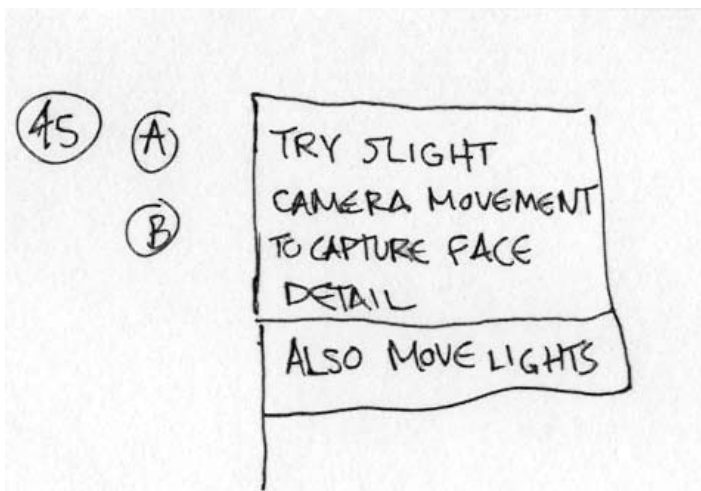 45 A
B
TRY SLIGHT
CAMERA MOVEMENT
TO CAPTURE FACE
DETAIL
ALSO MOVE LIGHTS